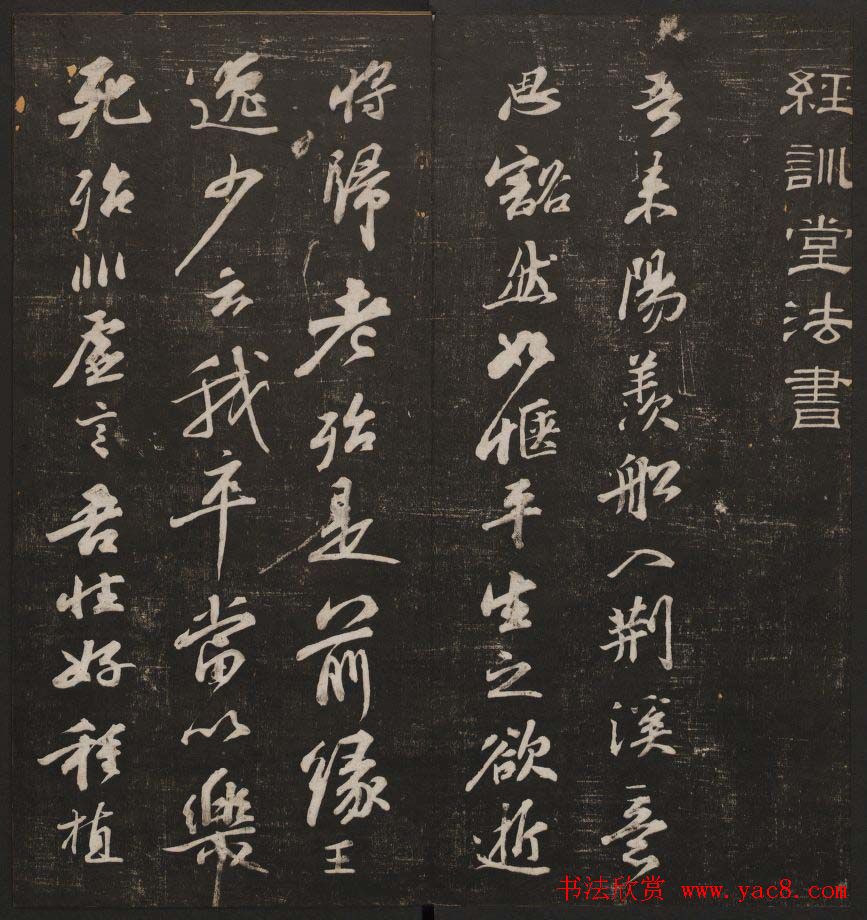 經訓堂法書
吾來陽羨船入荊溪意
思豁然如愜平生之欲逝
將歸老殆是前緣王
逸少云我卒當以樂
死殆非虛言吾性好種植
书法欣赏 www.yac8.com